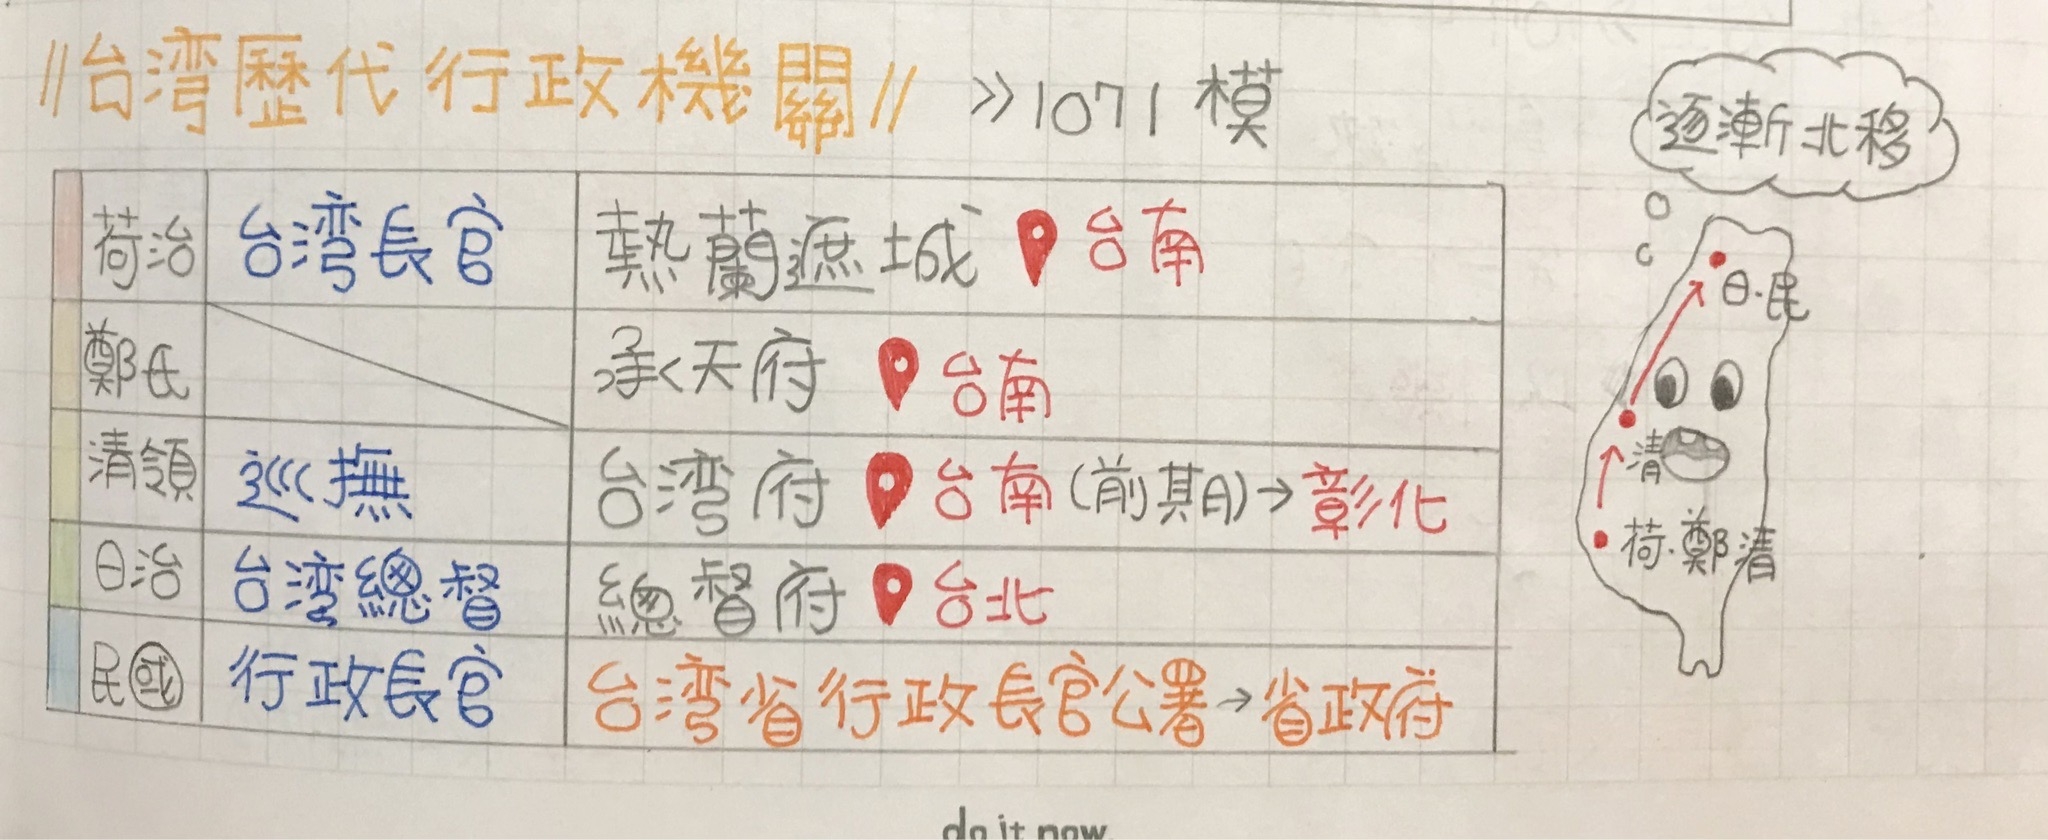 台湾歷代行政機關 >>1071模
荷治 台湾長官 熱蘭遮城 台南
鄭氏 承天府 台南
清領 巡撫 台湾府 台南(前期)→彰化
日治 台湾總督 總督府 台北
民國 行政長官 台湾省行政長官公署→省政府
逐漸北移
日.民
清
荷.鄭清
do it now.